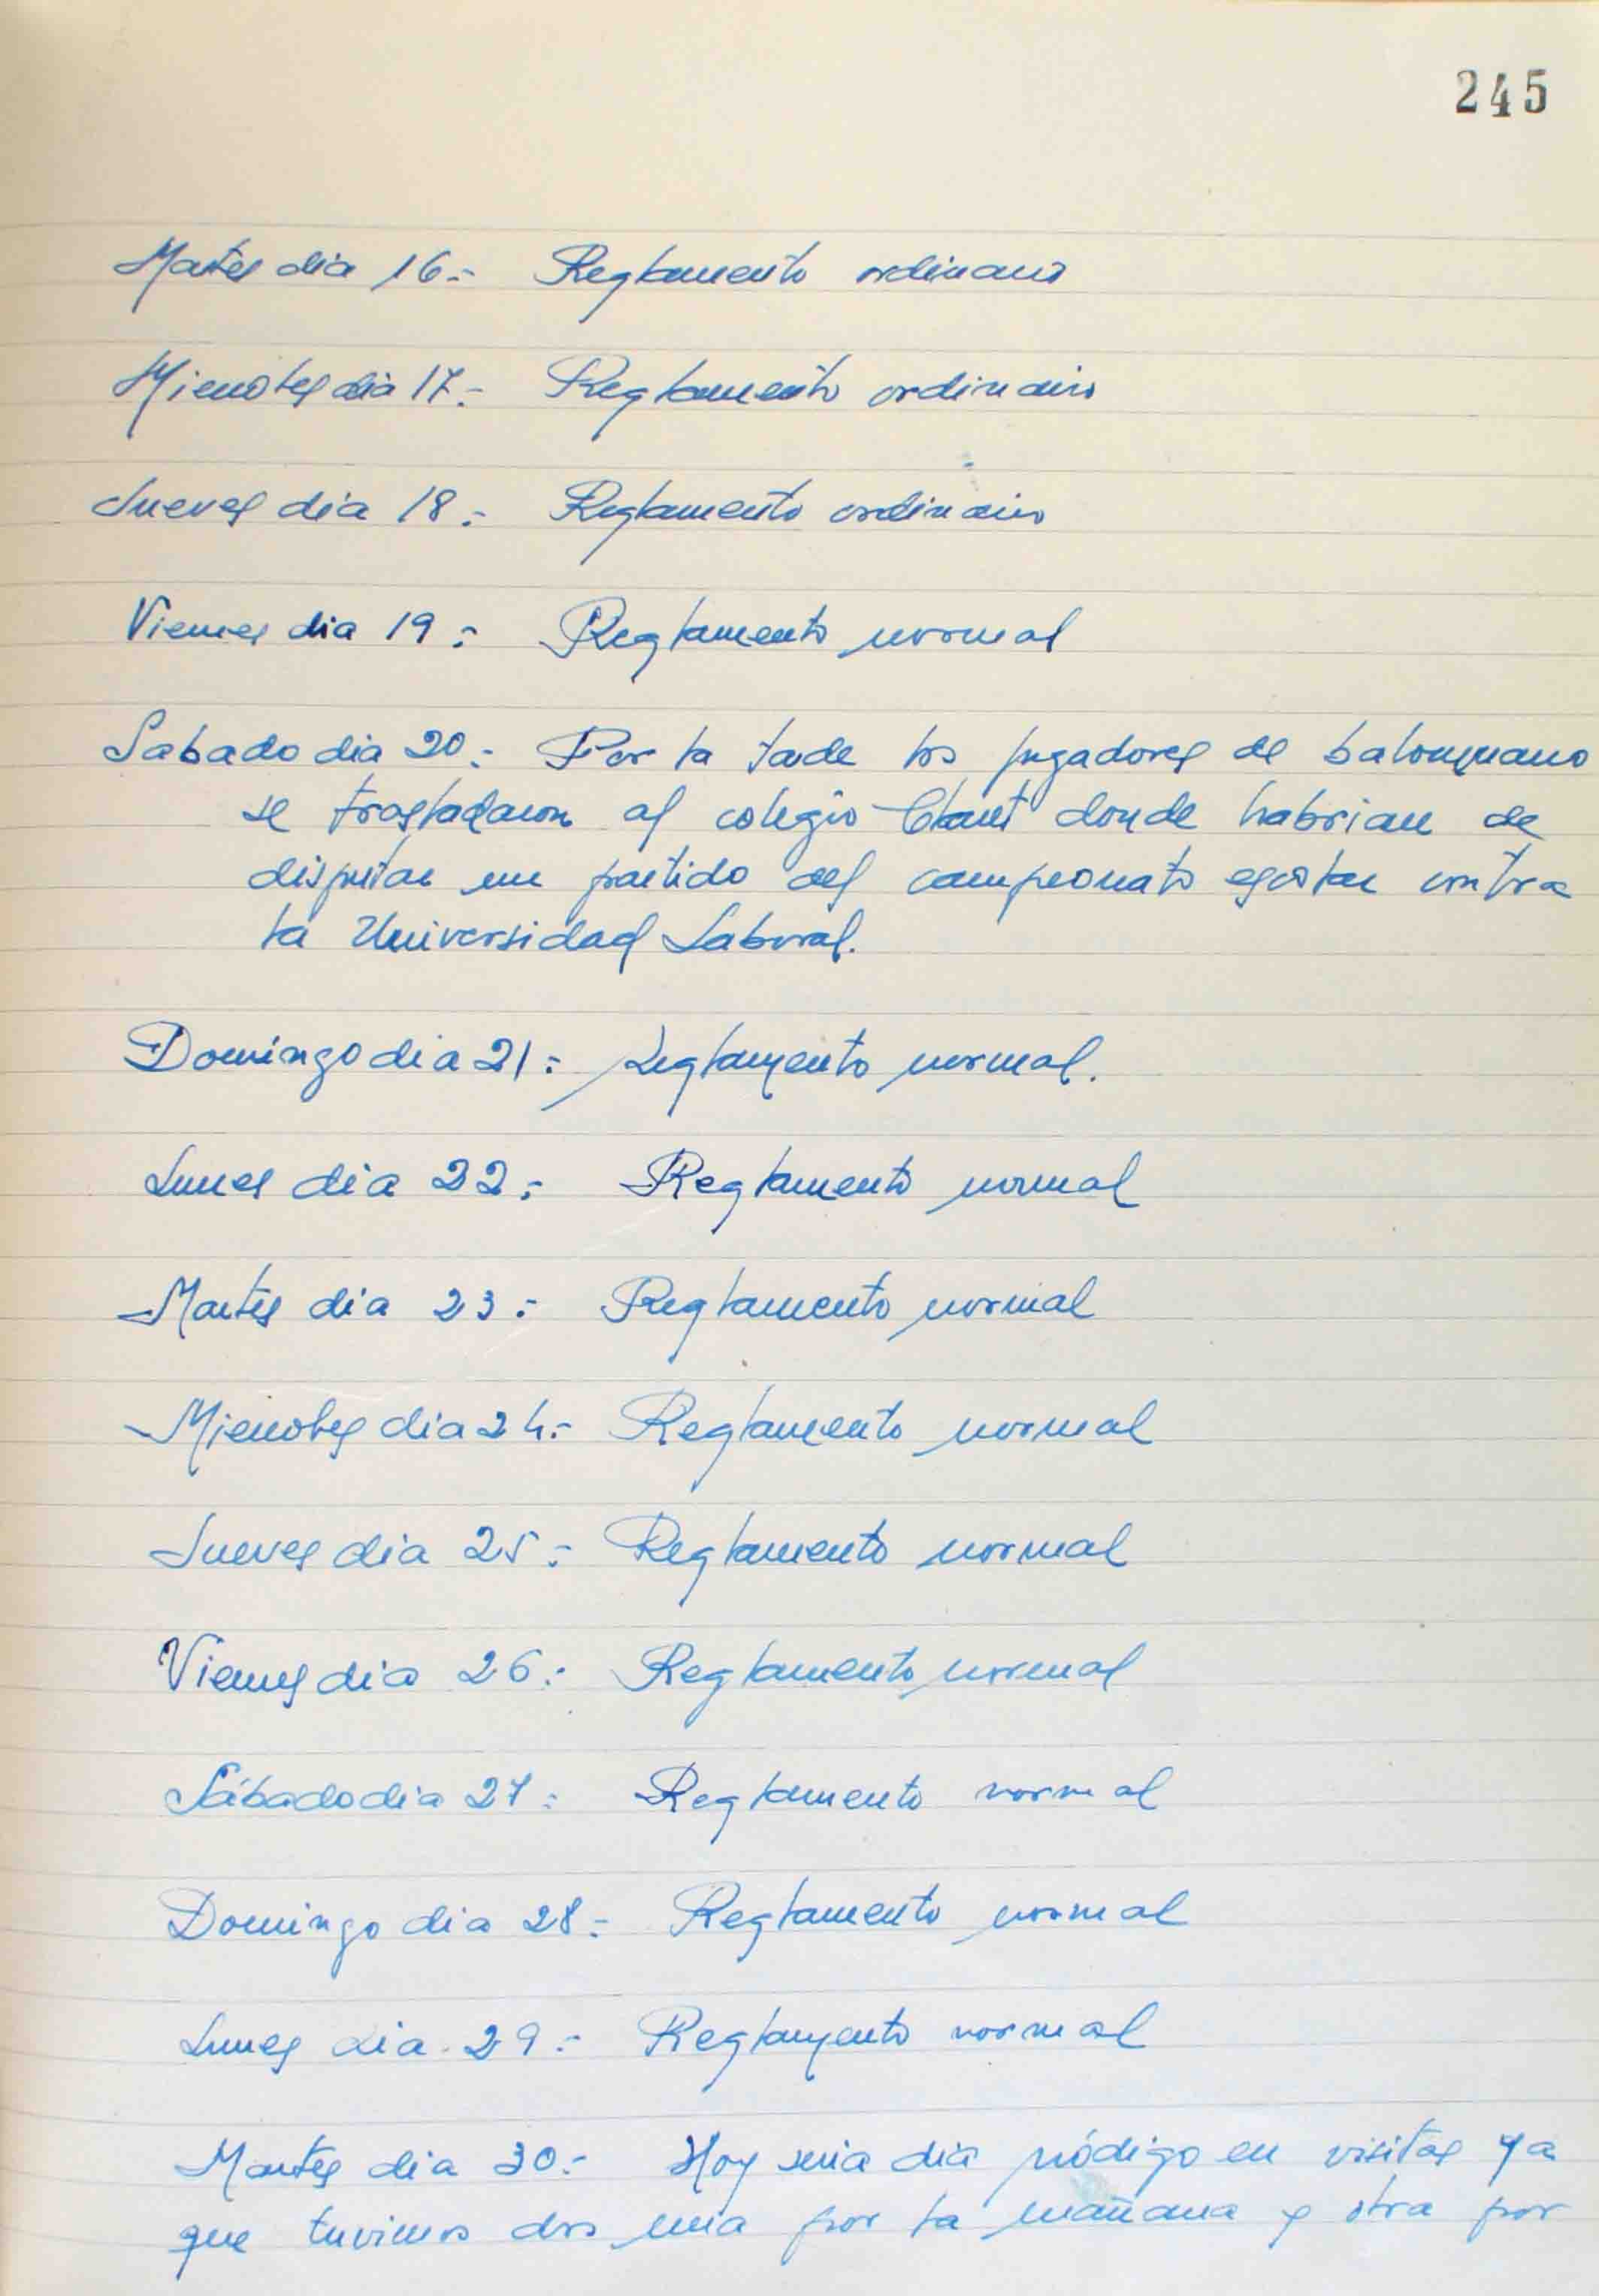 245
Martes dia 16.- Reglamento ordinario
Miercoles dia 17.- Reglamento ordinario
Jueves dia 18.- Reglamento ordinario
Viernes dia 19.- Reglamento normal
Sabado dia 20.- Por la tarde los jugadores de balonmano
se trasladaron al colegio Claret donde habrian de
disputar un partido del campeonato escolar contra
la Universidad Laboral.
Domingo dia 21.- Reglamento normal.
Lunes dia 22.- Reglamento normal
Martes dia 23.- Reglamento normal
Miercoles dia 24.- Reglamento normal
Jueves dia 25.- Reglamento normal
Viernes dia 26.- Reglamento normal
Sábado dia 27.- Reglamento normal
Domingo dia 28.- Reglamento normal
Lunes dia 29.- Reglamento normal
Martes dia 30.- Hoy seria dia pródigo en visitas ya
que tuvimos dos una por la mañana y otra por